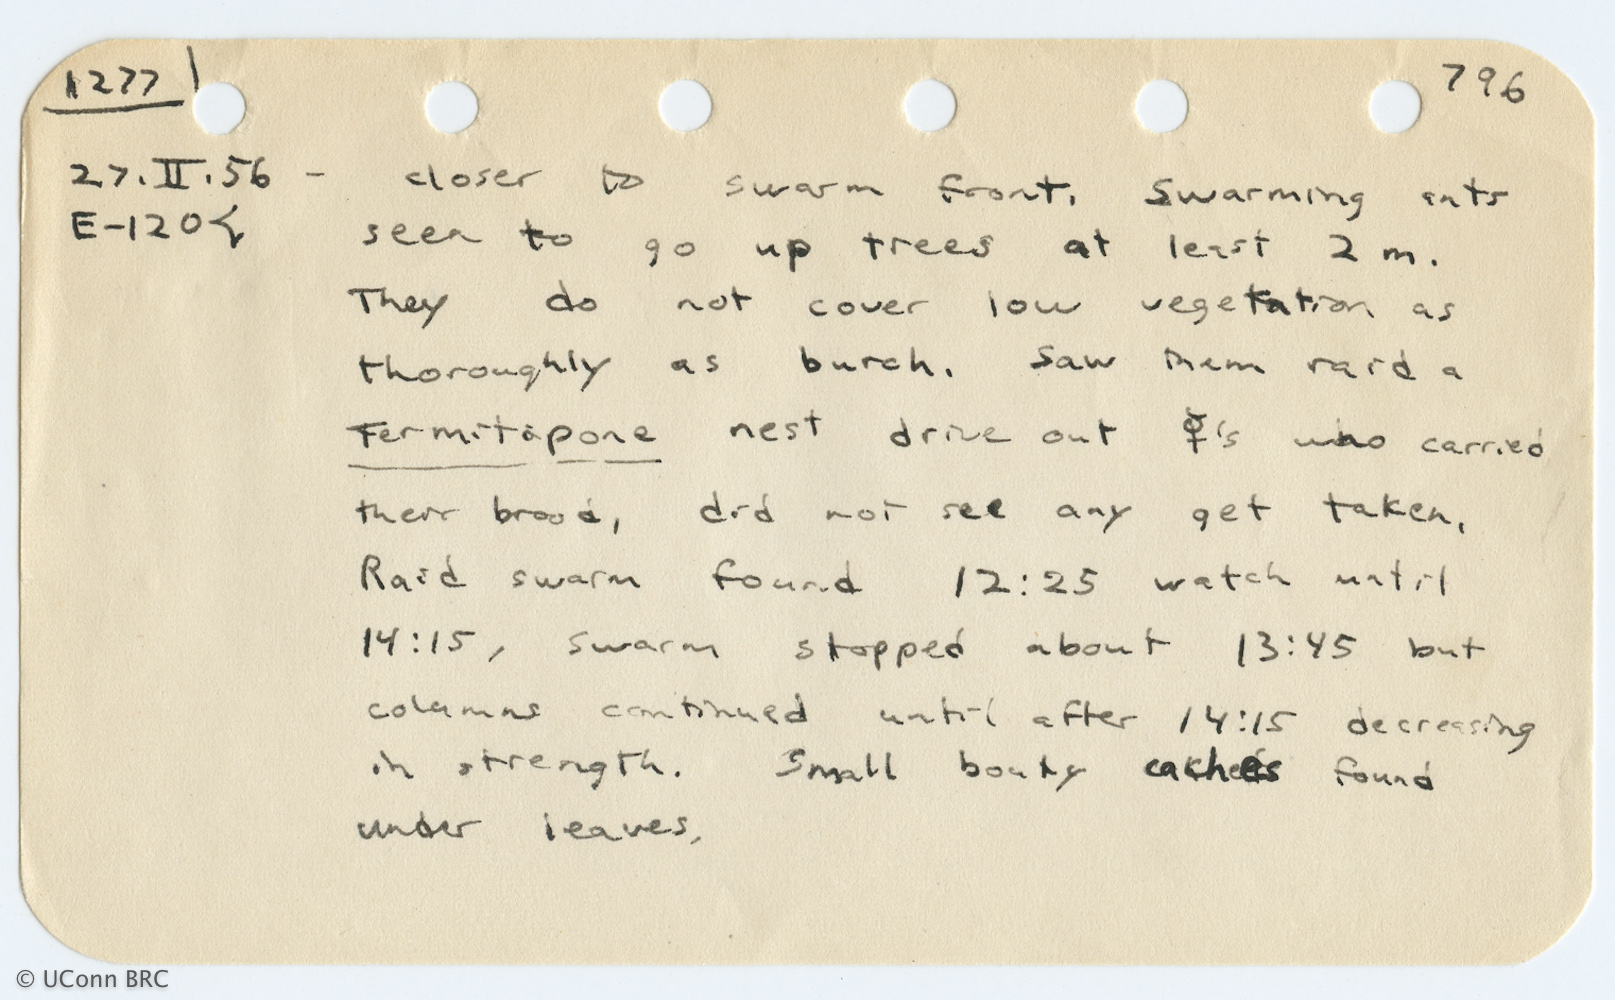 1277
796
27.II.56 - closer to swarm front. Swarming ants
E-120 seen to go up trees at least 2 m.
They do not cover low vegetation as
thoroughly as burch. Saw them raid a
Termitopone nest drive out ☿'s who carried
their brood, did not see any get taken.
Raid swarm found 12:25 watch until
14:15, swarm stopped about 13:45 but
columns continued until after 14:15 decreasing
in strength. Small booty caches found
under leaves.
© UConn BRC